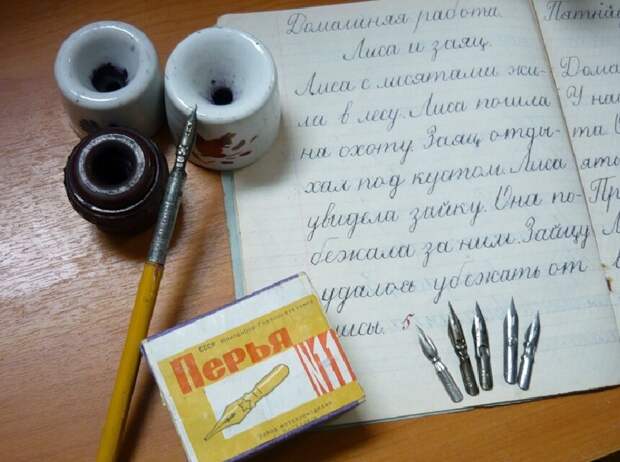 Домашняя работа.
Лиса и заяц.
Лиса с лисятами жи-
ла в лесу. Лиса пошла
на охоту. Заяц отды-
хал под кустом. Лиса
увидела зайку. Она по-
бежала за ним. Зайцу
удалось убежать от
лисы. 5
Дома
У на
СССР
Перья
№11